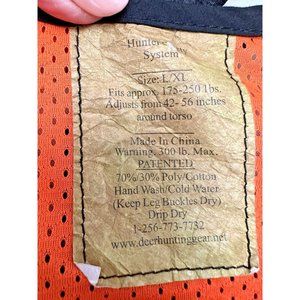 Hunter
System™
Size: L/XL
Fits approx. 175-250 lbs.
Adjusts from 42- 56 inches
around torso
Made In China
Warning, 300 lb. Max.
PATENTED
70%/30% Poly/Cotton
Hand Wash/Cold Water
(Keep Leg Buckles Dry)
Drip Dry
1-256-773-7732
www.deerhuntinggear.net